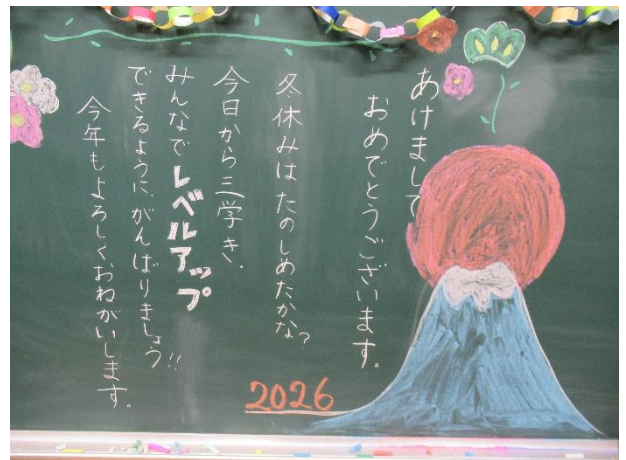 あけまして
おめでとうございます。
冬休みはたのしめたかな?
今日から三学き、
みんなでレベルアップ
できるように、がんばりましょう!!
今年もよろしくおねがいします。
2026